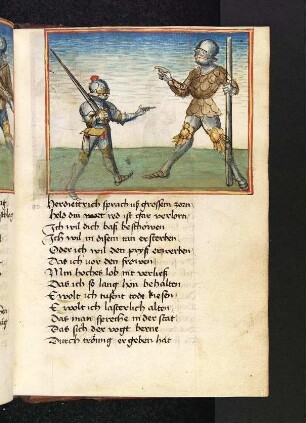 Her diettrich sprach uß grossem zorn
Held din red ist gar verlorn
Ich wil dich baß beschowen
Ich wil in disem tan ersterben
Oder ich wil den pryß erwerben
Das ich vor den frowen
Min hoches lob nit verließ
Das ich so lang hon behalten
E wolt ich tusent tode kiesen
E wolt ich lasterlich alten
Das man spreche in der stat
Das sich der vogt berne
Durch tröung er geben hat